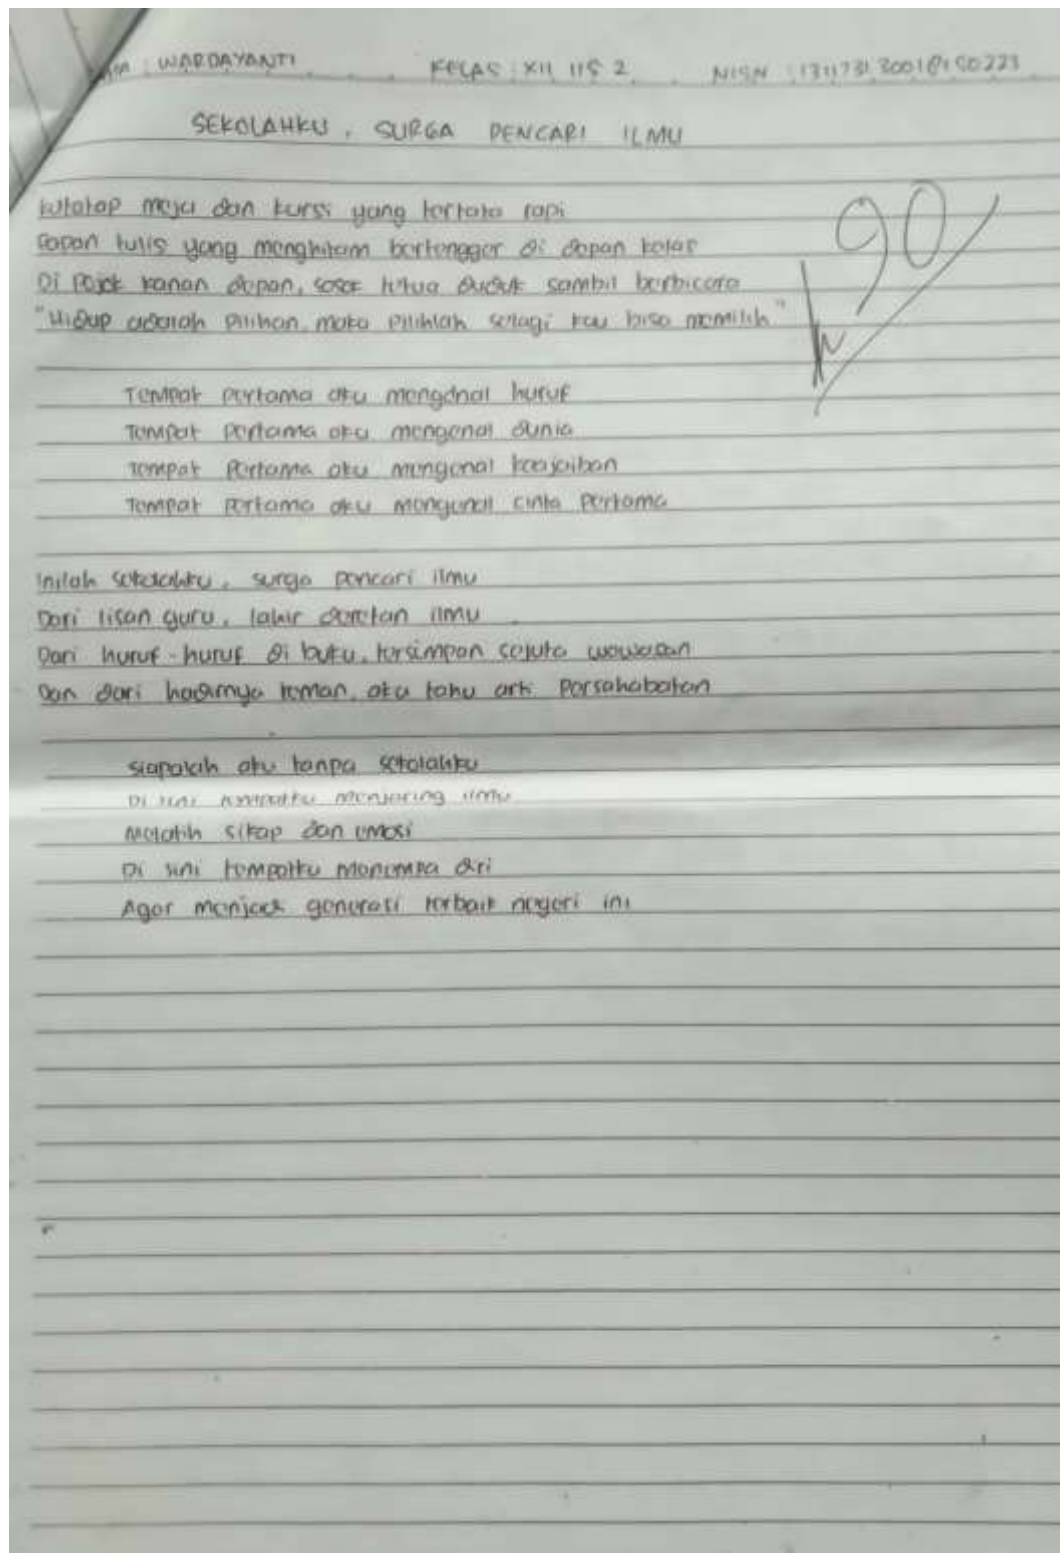 : WARDAYANTI KELAS : XII IIS 2 NISN :
SEKOLAHKU, SURGA PENCARI ILMU
kutatap meja dan kursi yang tertata rapi
Papan tulis yang menghitam bertengger di depan kelas
Di Pojok kanan depan, sosok tetua duduk sambil berbicara
"Hidup adalah pilihan, maka pilihlah selagi kau bisa memilih"
90
Tempat pertama aku mengenal huruf
Tempat pertama aku mengenal dunia
Tempat Pertama aku mengenal keajaiban
Tempat pertama aku mengenal cinta pertama
Inilah sekolahku, surga pencari ilmu
Dari lisan guru, lahir deretan ilmu
Dari huruf-huruf di buku, tersimpan sejuta wawasan
Dan dari hadirnya teman, aku tahu arti Persahabatan
siapalah aku tanpa sekolahku
Di sini tempatku menjaring ilmu
Melatih sikap dan emosi
Di sini tempatku menempa diri
Agar menjadi generasi terbaik negeri ini